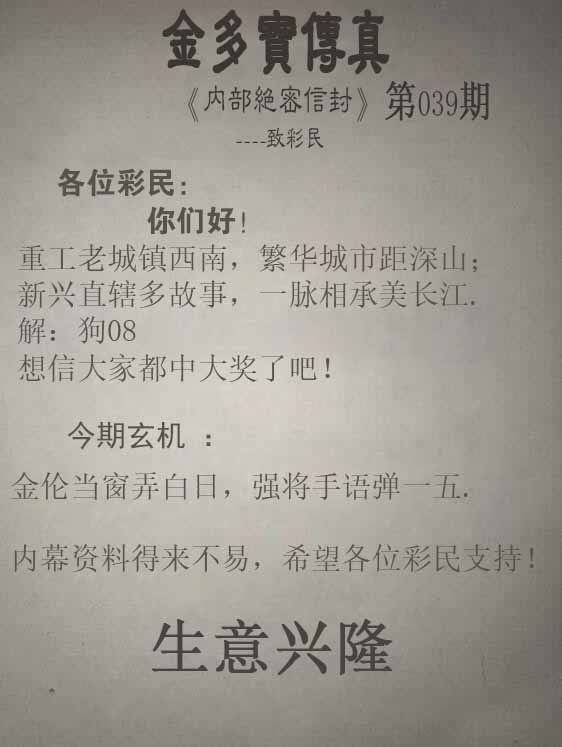 金多寶傳真
《内部絶密信封》第039期
----致彩民
各位彩民:
你们好!
重工老城镇西南，繁华城市距深山;
新兴直辖多故事，一脉相承美长江.
解：狗08
想信大家都中大奖了吧!
今期玄机 ：
金伦当窗弄白日，强将手语弹一五.
内幕资料得来不易，希望各位彩民支持!
生意兴隆